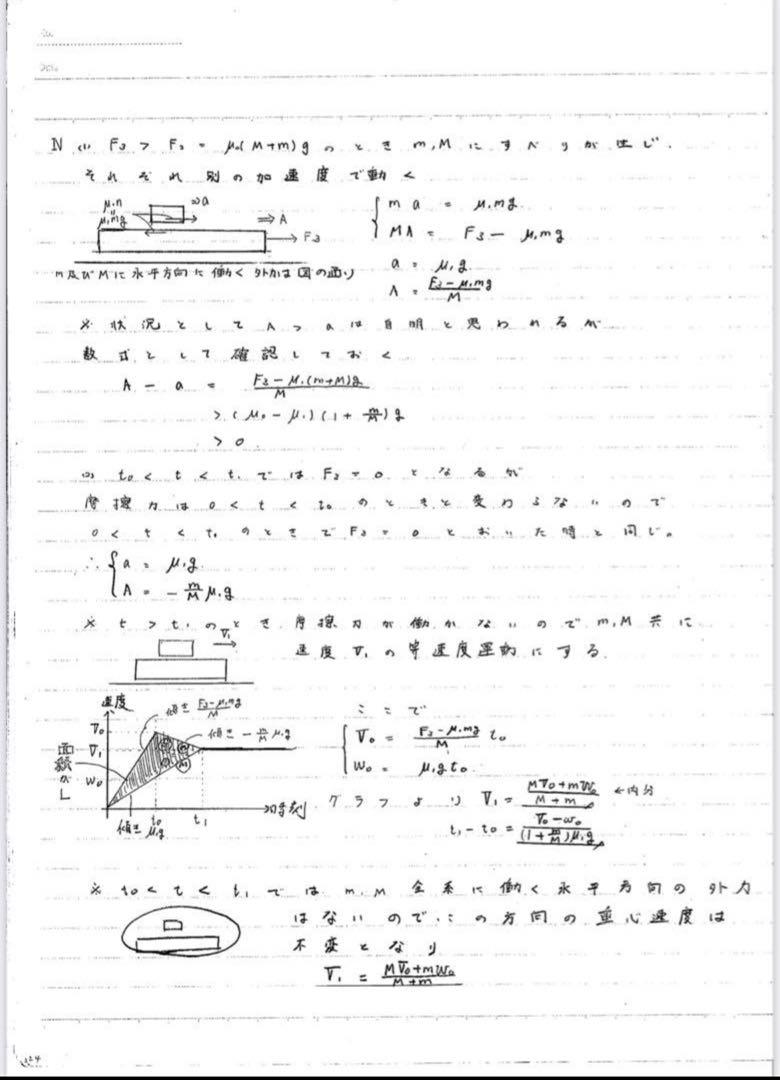 N (i) F₃ > F₂ = μ₀(M+m)g のとき m,M にすべりが生じ.
それぞれ別の加速度で動く
μ₁n
μ₁mg
⇒a
⇒A
F₃
m a = μ₁mg
MA = F₃ − μ₁mg
m及びMに水平方向に働く外力は図の通り
a = μ₁g
A = (F₃−μ₁mg)/M
※ 状況として A > a は自明と思われるが
数式として確認しておく
A − a = (F₃−μ₁(m+M)g)/M
> (μ₀ − μ₁)(1 + m/M)g
> 0
(ii) t₀ < t < t₁ では F₃ = 0 となるが
摩擦力は 0 < t < t₀ のときと変わらないので
0 < t < t₀ のときで F₃ = 0 とおいた時と同じ。
∴ a = μ₁g
A = − m/M μ₁g
※ t > t₁ のとき 摩擦力が働かないので m,M 共に
V₁
速度 V₁ の等速度運動にする
速度
傾き (F₃−μ₁mg)/M
傾き − m/M μ₁g
V₀
V₁
w₀
面積がL
傾き μ₁g
t₀
t₁
時刻
ここで
V₀ = (F₃−μ₁mg)/M t₀
w₀ = μ₁gt₀
グラフより V₁ = (MV₀+mw₀)/(M+m) ←内分
t₁−t₀ = (V₀−w₀)/((1+m/M)μ₁g)
※ t₀ < t < t₁ では m,M 全系に働く水平方向の外力
はないので、この方向の重心速度は
不変となり
V₁ = (MV₀+mw₀)/(M+m)